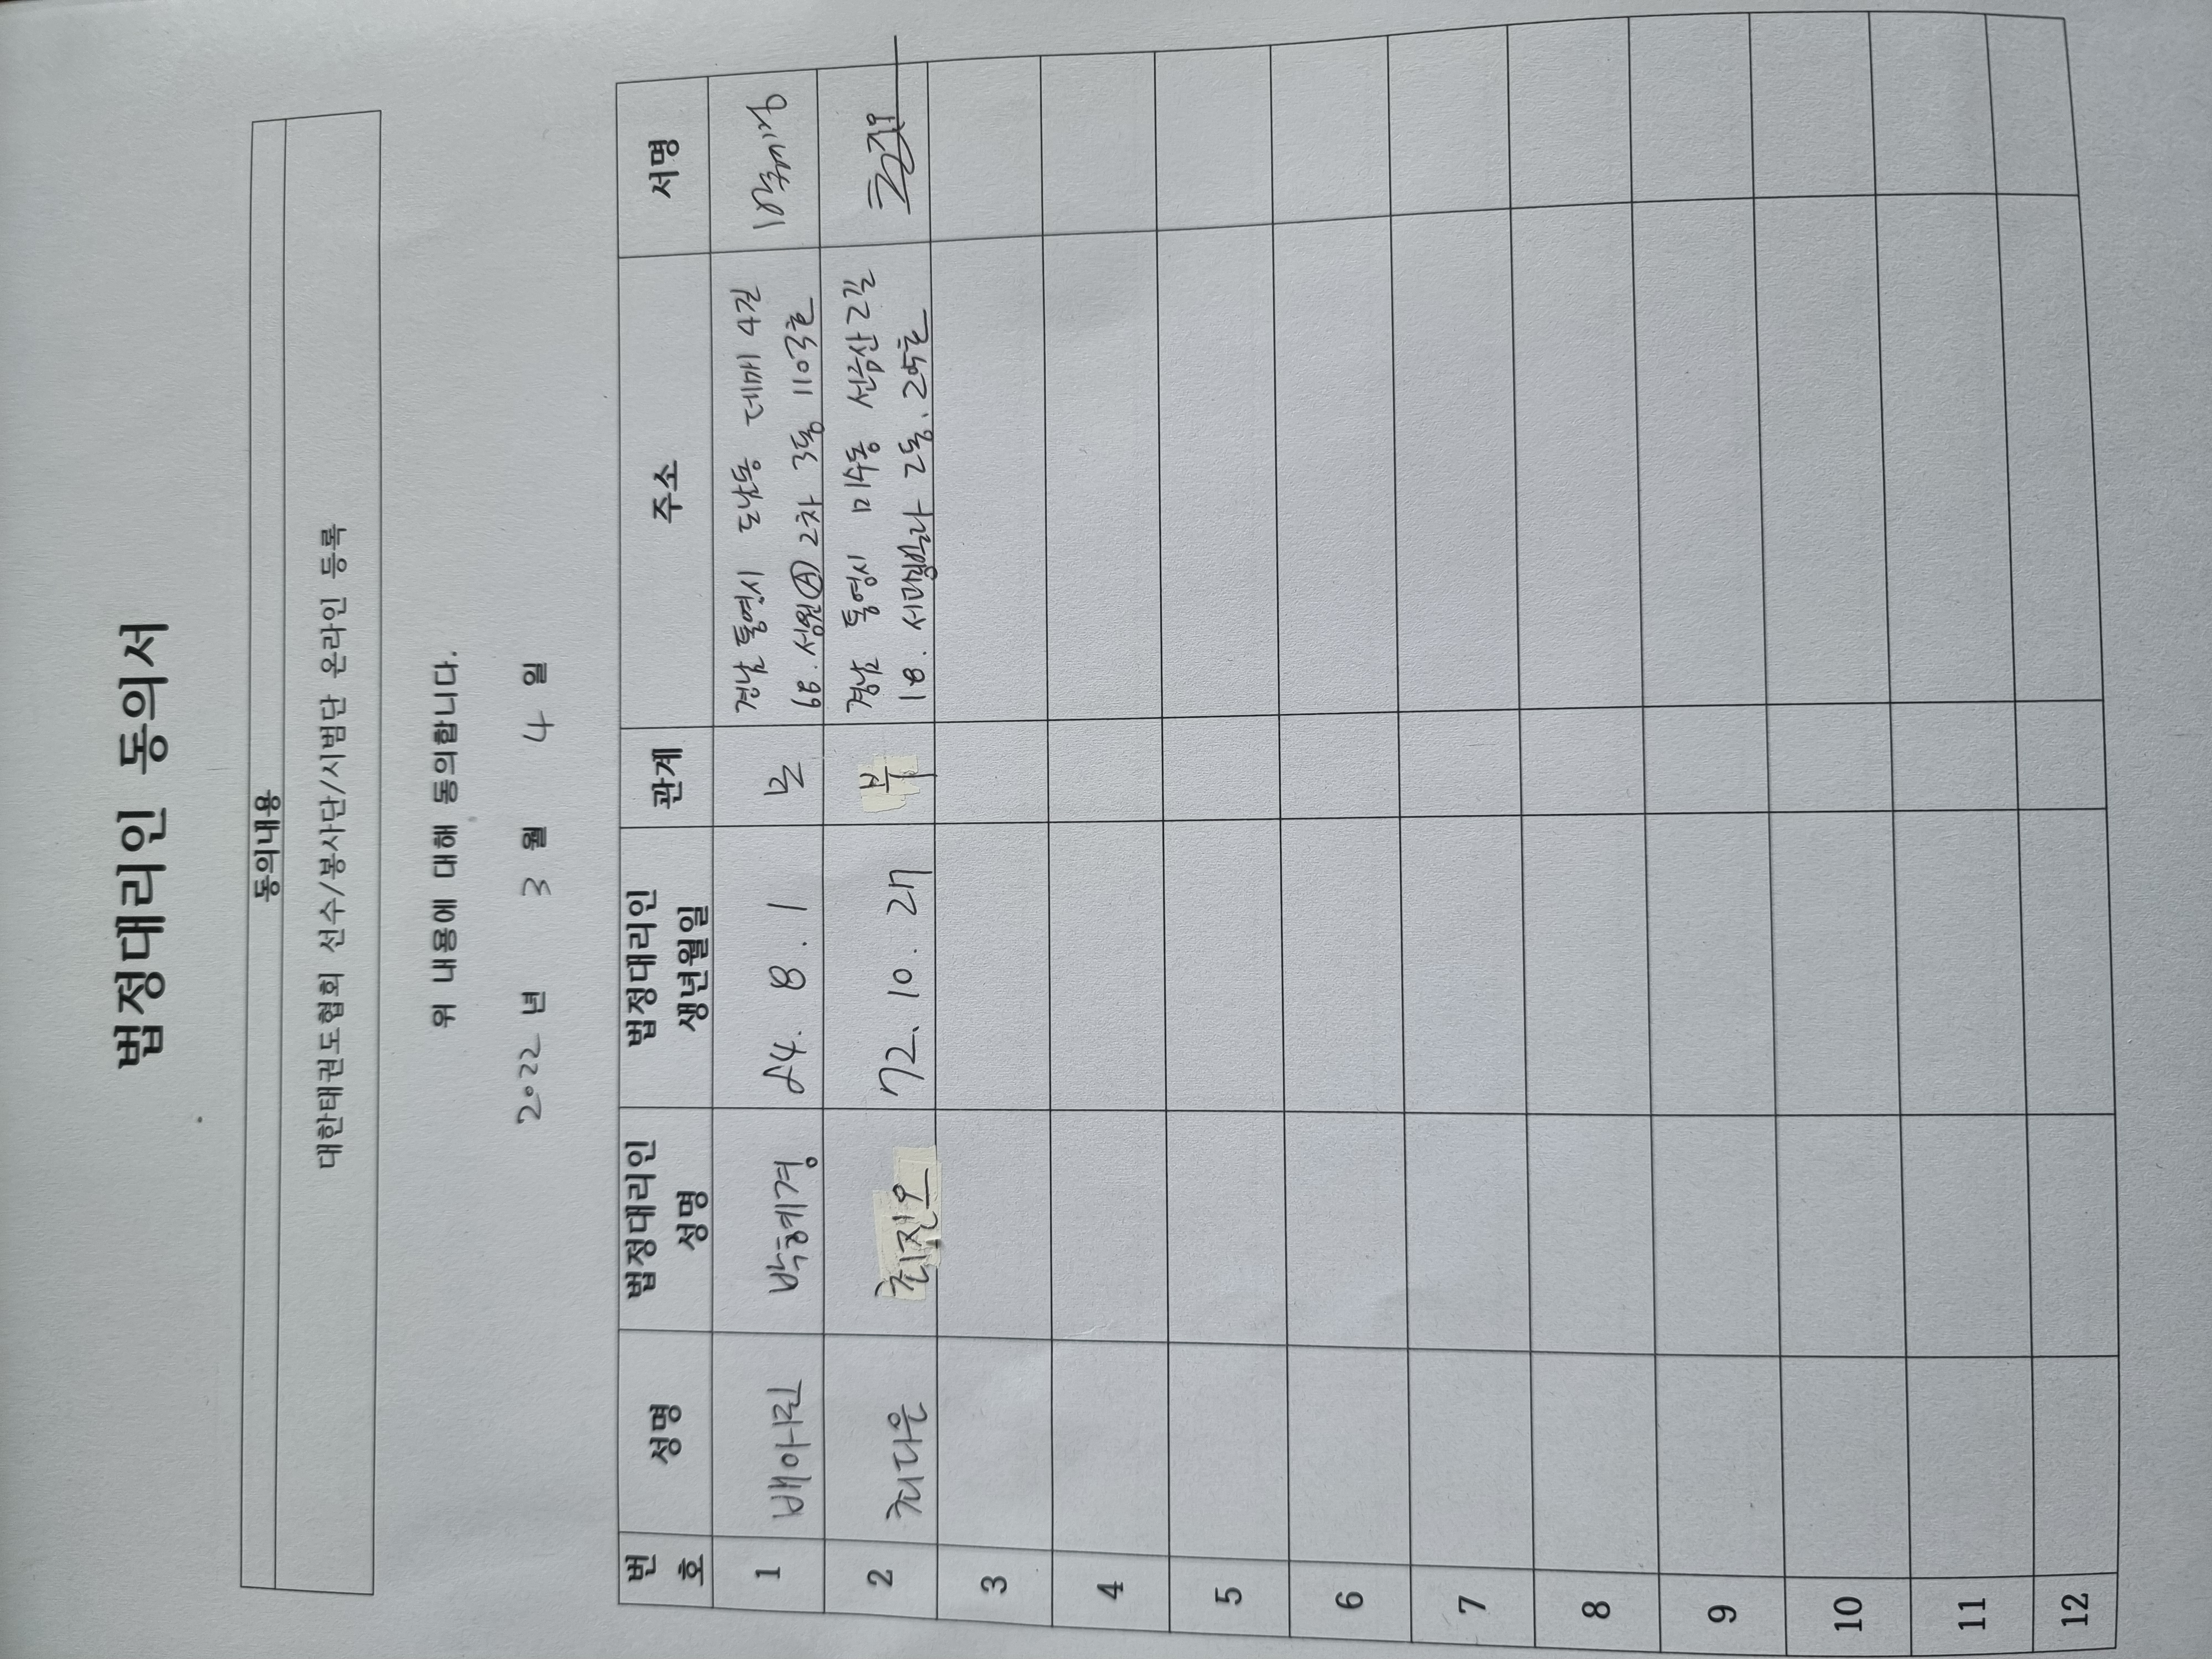 법정대리인 동의서
동의내용
대한태권도협회 선수/봉사단/시범단 온라인 등록
위 내용에 대해 동의합니다.
2022 년 3 월 4 일
번호 성명 법정대리인 성명 법정대리인 생년월일 관계 주소 서명
1 배아린 박혜경 84. 8. 1 모 경남 통영시 도남동 데메 4길
68. 성원Ⓐ 2차 3동 1103호
2 최다은 최진우 72. 10. 27 부 경남 통영시 미수동 2길
18. 2동. 205호
3
4
5
6
7
8
9
10
11
12